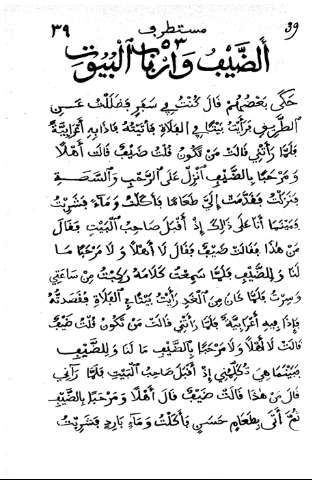 39
مستطرف
٣٩
٥٣
أَلضَّيْفُ وَأَرْبَابُ الْبُيُوتِ
حَكَى بَعْضُهُمْ قَالَ كُنْتُ فِي سَفَرٍ فَضَلَلْتُ عَنِ
الطَّرِيقِ فَرَأَيْتُ بَيْتًا فِي الْفَلَاةِ فَأَتَيْتُهُ فَإِذَا بِهِ أَعْرَابِيَّةٌ
فَلَمَّا رَأَتْنِي قَالَتْ مَنْ تَكُونُ قُلْتُ ضَيْفٌ قَالَتْ أَهْلًا
وَ مَرْحَبًا بِالضَّيْفِ انْزِلْ عَلَى الرَّحْبِ وَالسَّعَةِ
فَنَزَلْتُ فَقَدَّمَتْ لِي طَعَامًا فَأَكَلْتُ وَمَاءً فَشَرِبْتُ
وَبَيْنَمَا أَنَا عَلَى ذَلِكَ إِذْ أَقْبَلَ صَاحِبُ الْبَيْتِ فَقَالَ
مَنْ هٰذَا فَقَالَتْ ضَيْفٌ فَقَالَ لَا أَهْلًا وَ لَا مَرْحَبًا مَا
لَنَا وَلِلضَّيْفِ فَلَمَّا سَمِعْتُ كَلَامَهُ رَكِبْتُ مِنْ سَاعَتِي
وَسِرْتُ فَلَمَّا كَانَ مِنَ الْغَدِ رَأَيْتُ بَيْتًا فِي الْفَلَاةِ فَقَصَدتُهُ
فَإِذَا فِيهِ أَعْرَابِيَّةٌ فَلَمَّا رَأَتْنِي قَالَتْ مَنْ تَكُونُ قُلْتُ ضَيْفٌ
قَالَتْ لَا أَهْلًا وَلَا مَرْحَبًا بِالضَّيْفِ مَا لَنَا وَ لِلضَّيْفِ
فَبَيْنَمَا هِيَ تُكَلِّمُنِي إِذْ أَقْبَلَ صَاحِبُ الْبَيْتِ فَلَمَّا رَآنِي
قَالَ مَنْ هٰذَا قَالَتْ ضَيْفٌ قَالَ أَهْلًا وَ مَرْحَبًا بِالضَّيْفِ
ثُمَّ أَتَى بِطَعَامٍ حَسَنٍ فَأَكَلْتُ وَ مَاءٍ بَارِدٍ فَشَرِبْتُ